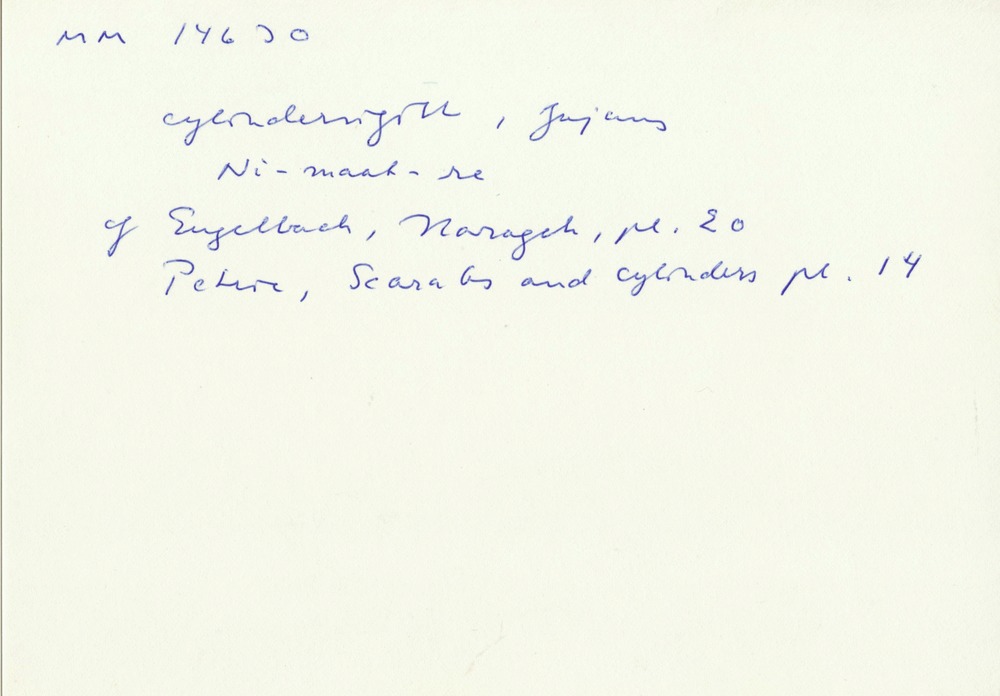 MM 14630
cylindersigill, fajans
Ni-maat-re
cf Engelbach, Harageh, pl. 20
Petrie, Scarabs and cylinders pl. 14